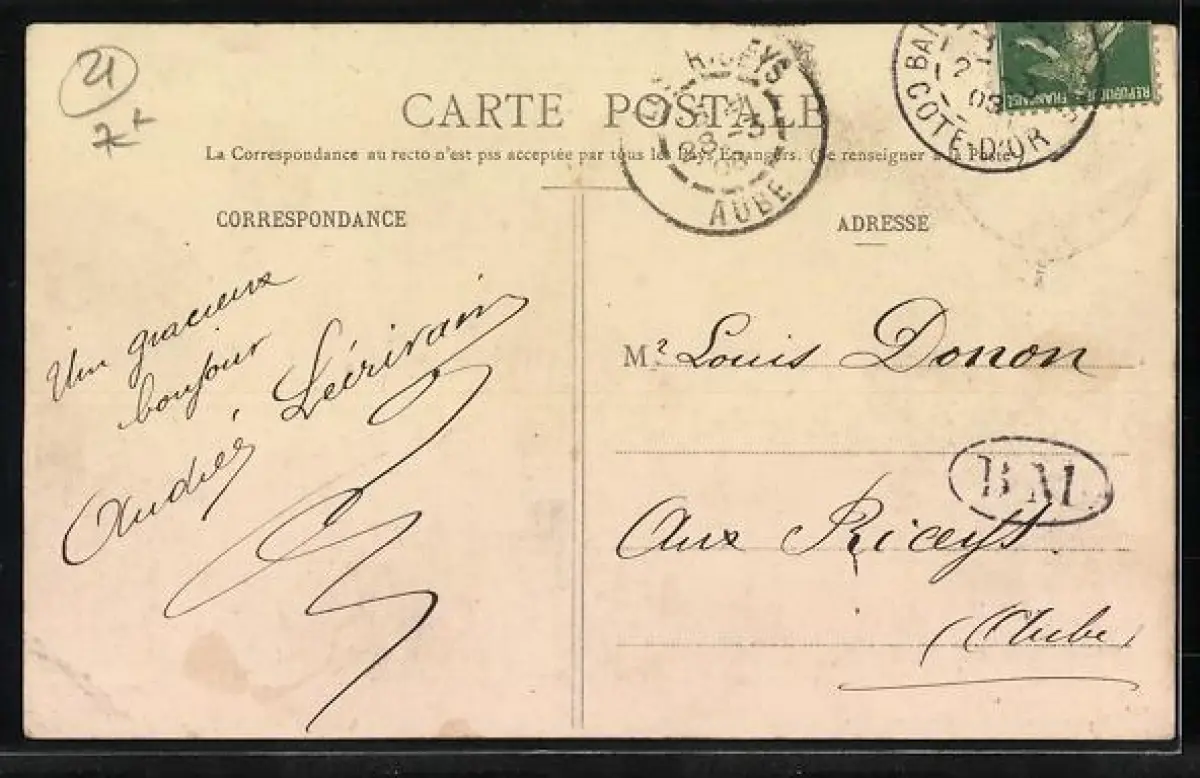 21
CARTE POSTALE
La Correspondance au recto n'est pss acceptée par tous les Pays Etrangers. (Se renseigner à la Poste)
RICEYS
AUBE
CÔTE-D'OR
REPUBLIQUE FRANÇAISE
CORRESPONDANCE
Un gracieux
bonjour
André Lécrivain
ADRESSE
Mr Louis Donon
BM
Aux Riceys.
(Aube)